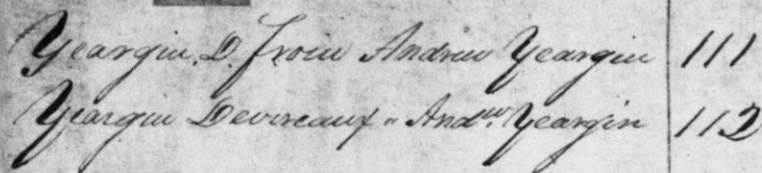 Yeargin, D. from Andrew Yeargin 111
Yeargin Devereaux " Andrw. Yeargin 112